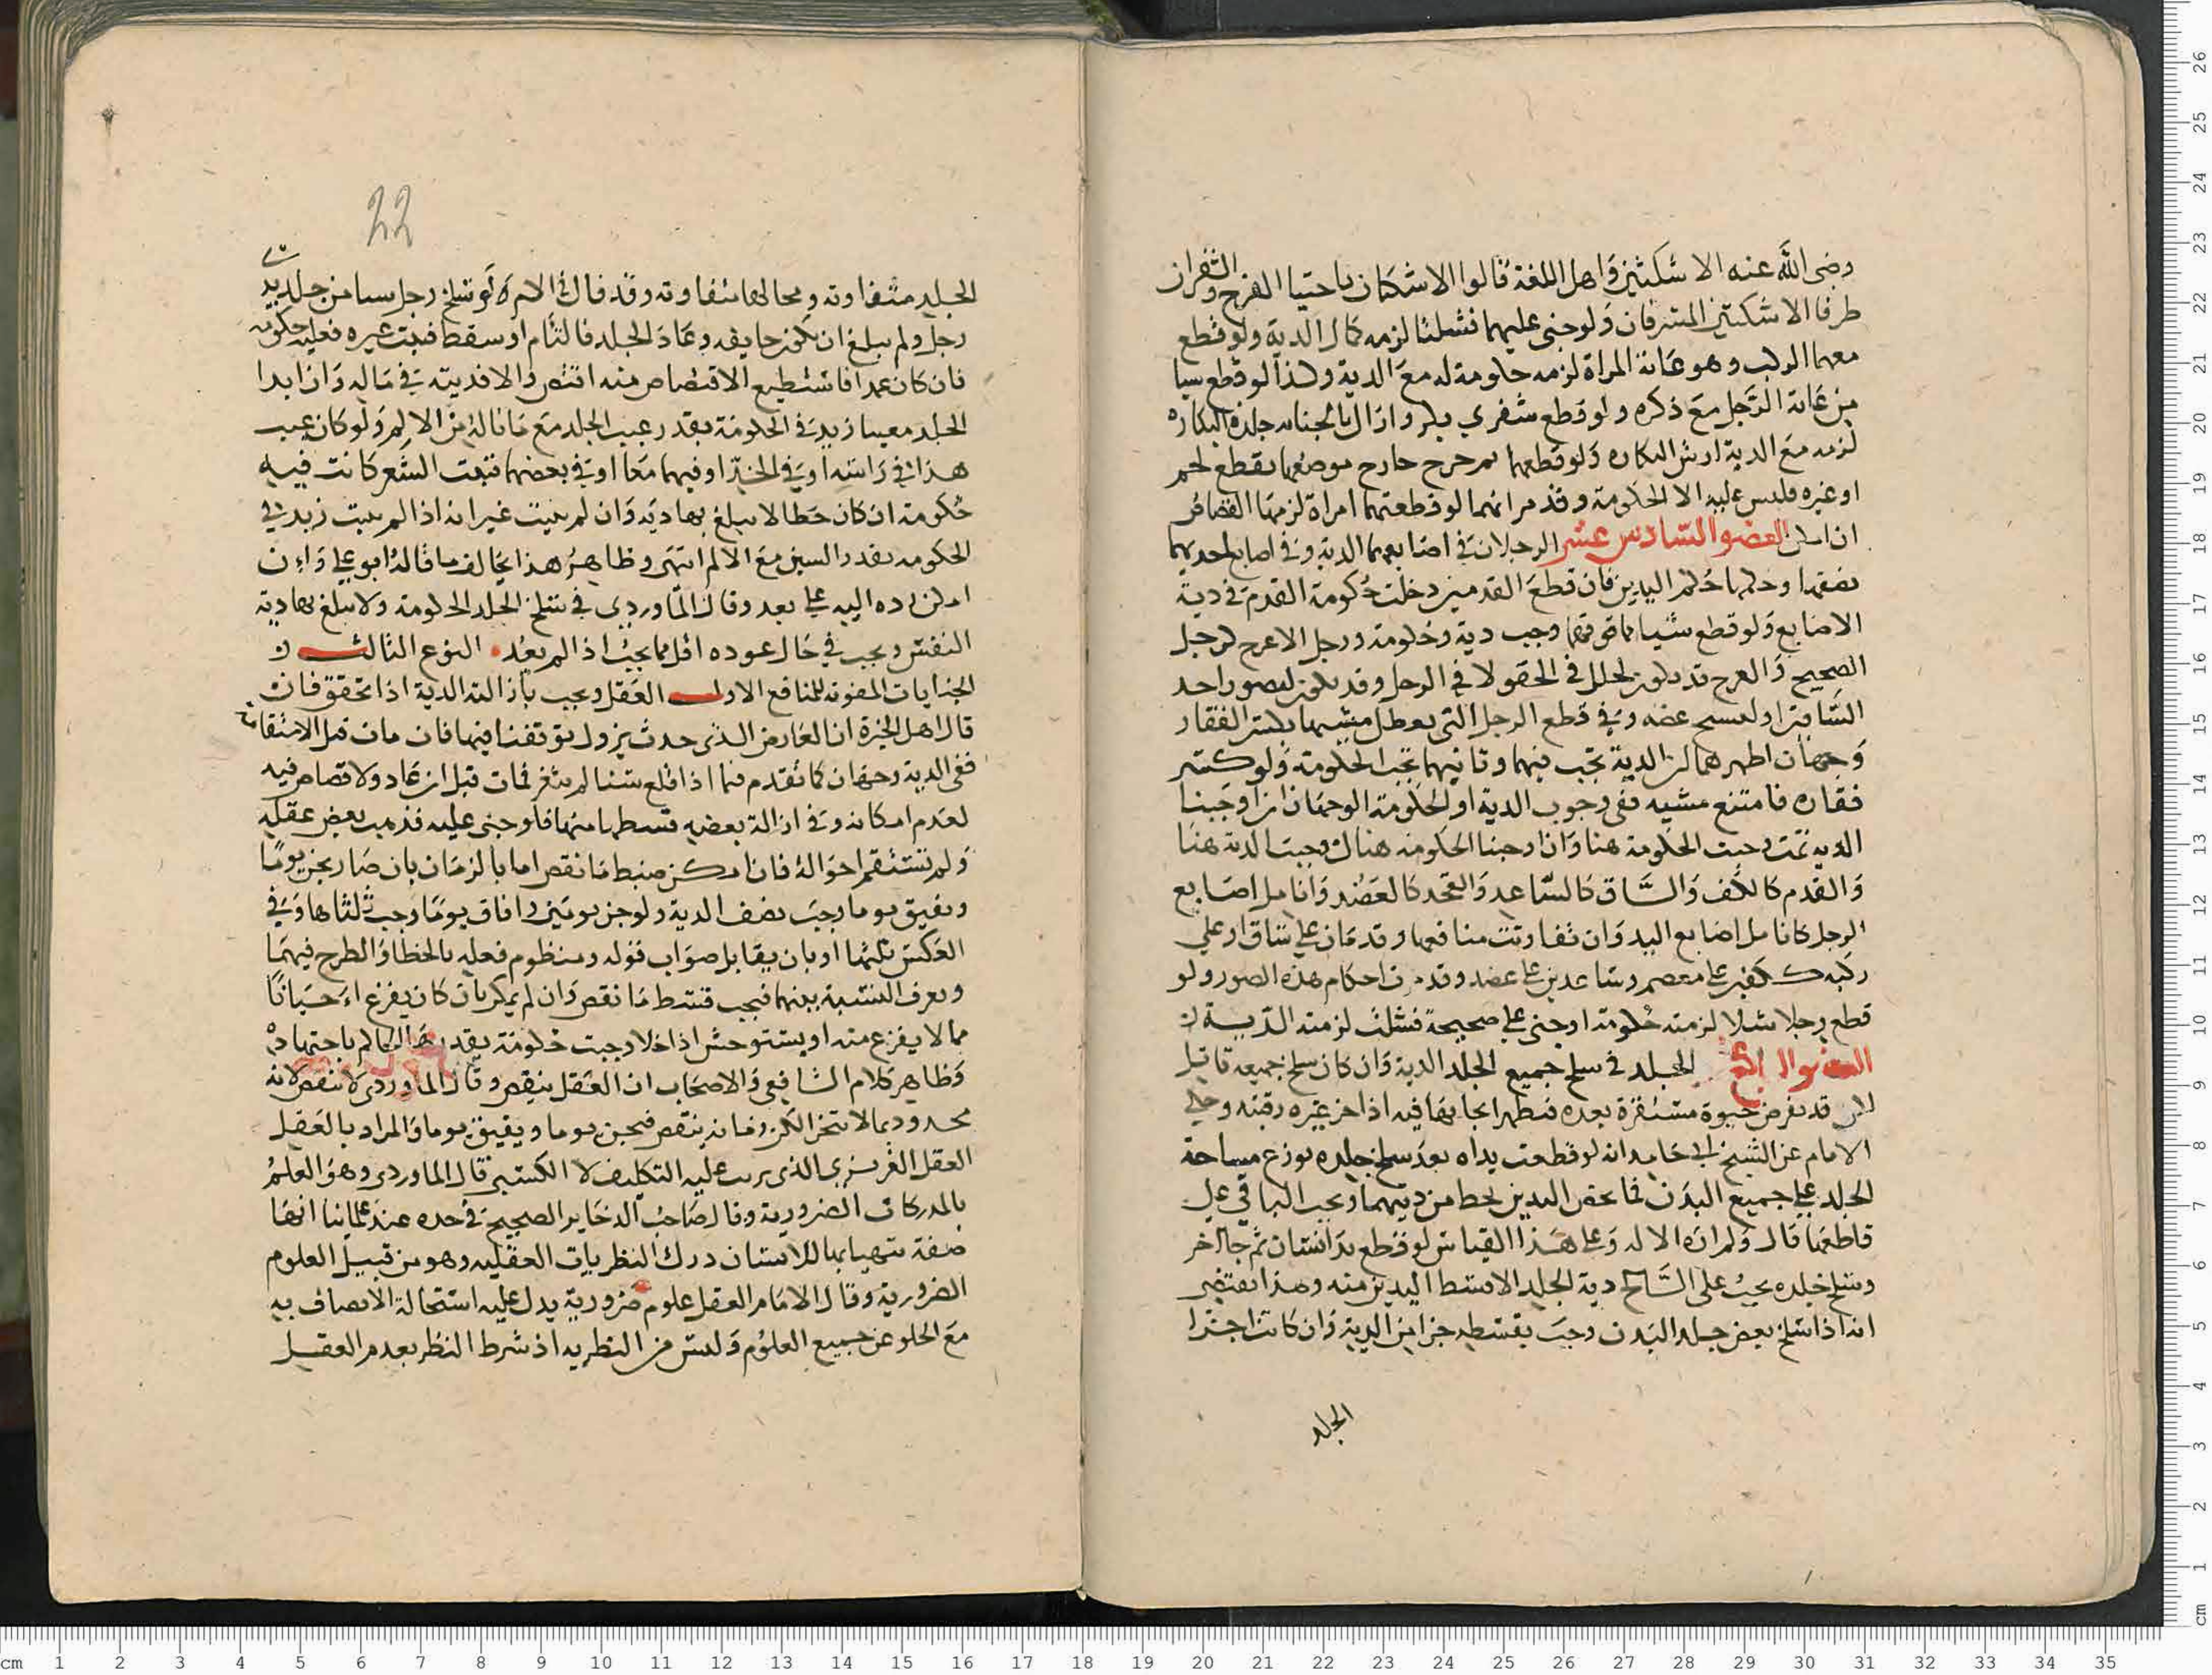 رضى الله عنه الاسكتين واهل اللغة قالوا الاسكتان ناحيتا الفرج والشفران
طرفا الاسكتين المشرفان ولو جنى عليهما فشلتا لزمه كمال الدية ولو قطع
معهما الركب وهو عانة المراة لزمه حكومة له مع الدية وكذا لو قطع شيا
من عانة الرجل مع ذكره ولو قطع شفري بكر وازال بالجناية جلدة البكارة
لزمه مع الدية ارش البكارة ولو قطعهما ثم جرح جارح موضعهما بقطع لحم
او غيره فليس عليه الا الحكومة وقد مر انهما لو قطعتهما امراة لزمها القصاص
ان امكن العضو السادس عشر الرجلان في اصابعهما الدية وفي اصابع احديهما
نصفها وحكمها حكم اليدين فان قطع القدمين دخلت حكومة القدم في دية
الاصابع ولو قطع شيا مما فوقهما وجب دية وحكومة ورجل الاعرج كرجل
الصحيح والعرج قد يكون لخلل في الحقو لا في الرجل وقد يكون لقصور احد
الساقين او لتشنج عضه وفي قطع الرجل التي تعطل مشيها بكسر الفقار
وجهان اظهرهما ان الدية تجب فيها وثانيهما تجب الحكومة ولو كسر
فقاره فامتنع مشيه ففي وجوب الدية او الحكومة الوجهان ان اوجبنا
الدية ثمت وجبت الحكومة هنا وان اوجبنا الحكومة هناك وجبت الدية هنا
والقدم كالكف والساق كالساعد والفخد كالعضد وانامل اصابع
الرجل كانامل اصابع اليد وان تفاوتت منافعها وقدمان على ساق او على
ركبة ككفين على معصم وساعدين على عضد وقد مرت احكام هذه الصور ولو
قطع رجلا شلا لزمته حكومة او جنى على صحيحة فشلت لزمته الدية
العضو السابع عشر الجلد في سلخ جميع الجلد الدية وان كان سلخ جميعه قاتلا
لكن قد تفرض حيوة مستقرة بعده فيظهر ايجابها فيه اذا حز غيره رقبته وحكى
الامام عن الشيخ ابي حامد انه لو قطعت يداه بعد سلخ جلده يوزع مساحة
الجلد على جميع البدن فما يخص اليدين يحط من ديتهما ويجب الباقي على
قاطعهما قال ولم اره الا له وعلى هذا القياس لو قطع يد انسان ثم جا اخر
وسلخ جلده يجب على السالخ دية الجلد الا قسط اليدين منه وهذا يقتضي
انه اذا سلخ بعض جلد البدن وجب بقسطه جزا من الدية وان كانت اجزا
الجلد
22
الجلد متفاوتة ومحالها متفاوتة وقد قال في الام ولو سلخ رجل سيا من جلد يد
رجل ولم يبلغ ان تكون جايفة وعاد الجلد فالتام او سقط فنبت غيره فعليه حكومة
فان كان عمدا فاستطيع الاقتصاص منه اقتص والا فديته في ماله وان ابدا
الجلد معيبا زيد في الحكومة بقدر عيب الجلد مع ما ناله من الالم ولو كان عيب
هذا في راسه او في الخد او فيهما معا او في بعضهما فنبت الشعر كانت فيه
حكومة ان كان خطا لا يبلغ بها دية وان لم ينبت غير انه اذا لم ينبت زيد في
الحكومة بقدر الشين مع الالم انتهى وظاهر هذا يخالف ما قاله ابو علي وان
امكن رده اليه على بعد وقال الماوردي في سلخ الجلد الحكومة ولا يبلغ بها دية
النفس ويجب في حال عوده اقل مما يجب اذا لم يعد النوع الثالث في
الجنايات المفوتة للمنافع الاول العقل ويجب بازالته الدية اذا تحقق فان
قال اهل الخبرة ان العارض الذي حدث يزول توقفنا فيها فان مات قبل الاستقامة
ففي الدية وجهان كما تقدم فيما اذا قلع سنا لم يثغر فمات قبل ان عاد ولا قصاص فيه
لعدم امكانه وفي ازالة بعضه قسطها منها فلو جنى عليه فذهب بعض عقله
ولم تستقم احواله فان امكن ضبط ما نقص اما بالزمان بان صار يجن يوما
ويفيق يوما وجب نصف الدية ولو جن يومين وافاق يوما وجب ثلثاها وفي
العكس ثلثها او بان يقابل صواب قوله ومنظوم فعله بالخطا والطرح فيهما
ويعرف النسبة بينهما فيجب قسط ما نقص وان لم يمكن بان كان يفزع احيانا
مما لا يفزع منه او يستوحش اذا خلا وجبت حكومة يقدرها الحاكم باجتهاده
وظاهر كلام الشافعي والاصحاب ان العقل ينقص وقال الماوردي لا ينقص لانه
محدود بما لا يتجزا لكن زمانه ينقص فيجن يوما ويفيق يوما والمراد بالعقل
العقل الغريزي الذي يرتب عليه التكليف لا الكسبي قال الماوردي وهو العلم
بالمدركات الضرورية وقال صاحب الذخاير الصحيح في حده عند علماينا انها
صفة يتهيا بها للانسان درك النظريات العقلية وهو من قبيل العلوم
الضرورية وقال الامام العقل علوم ضرورية يدل عليه استحالة الاتصاف به
مع الخلو عن جميع العلوم وليس من النظرية اذ شرط النظر بعدم العقل